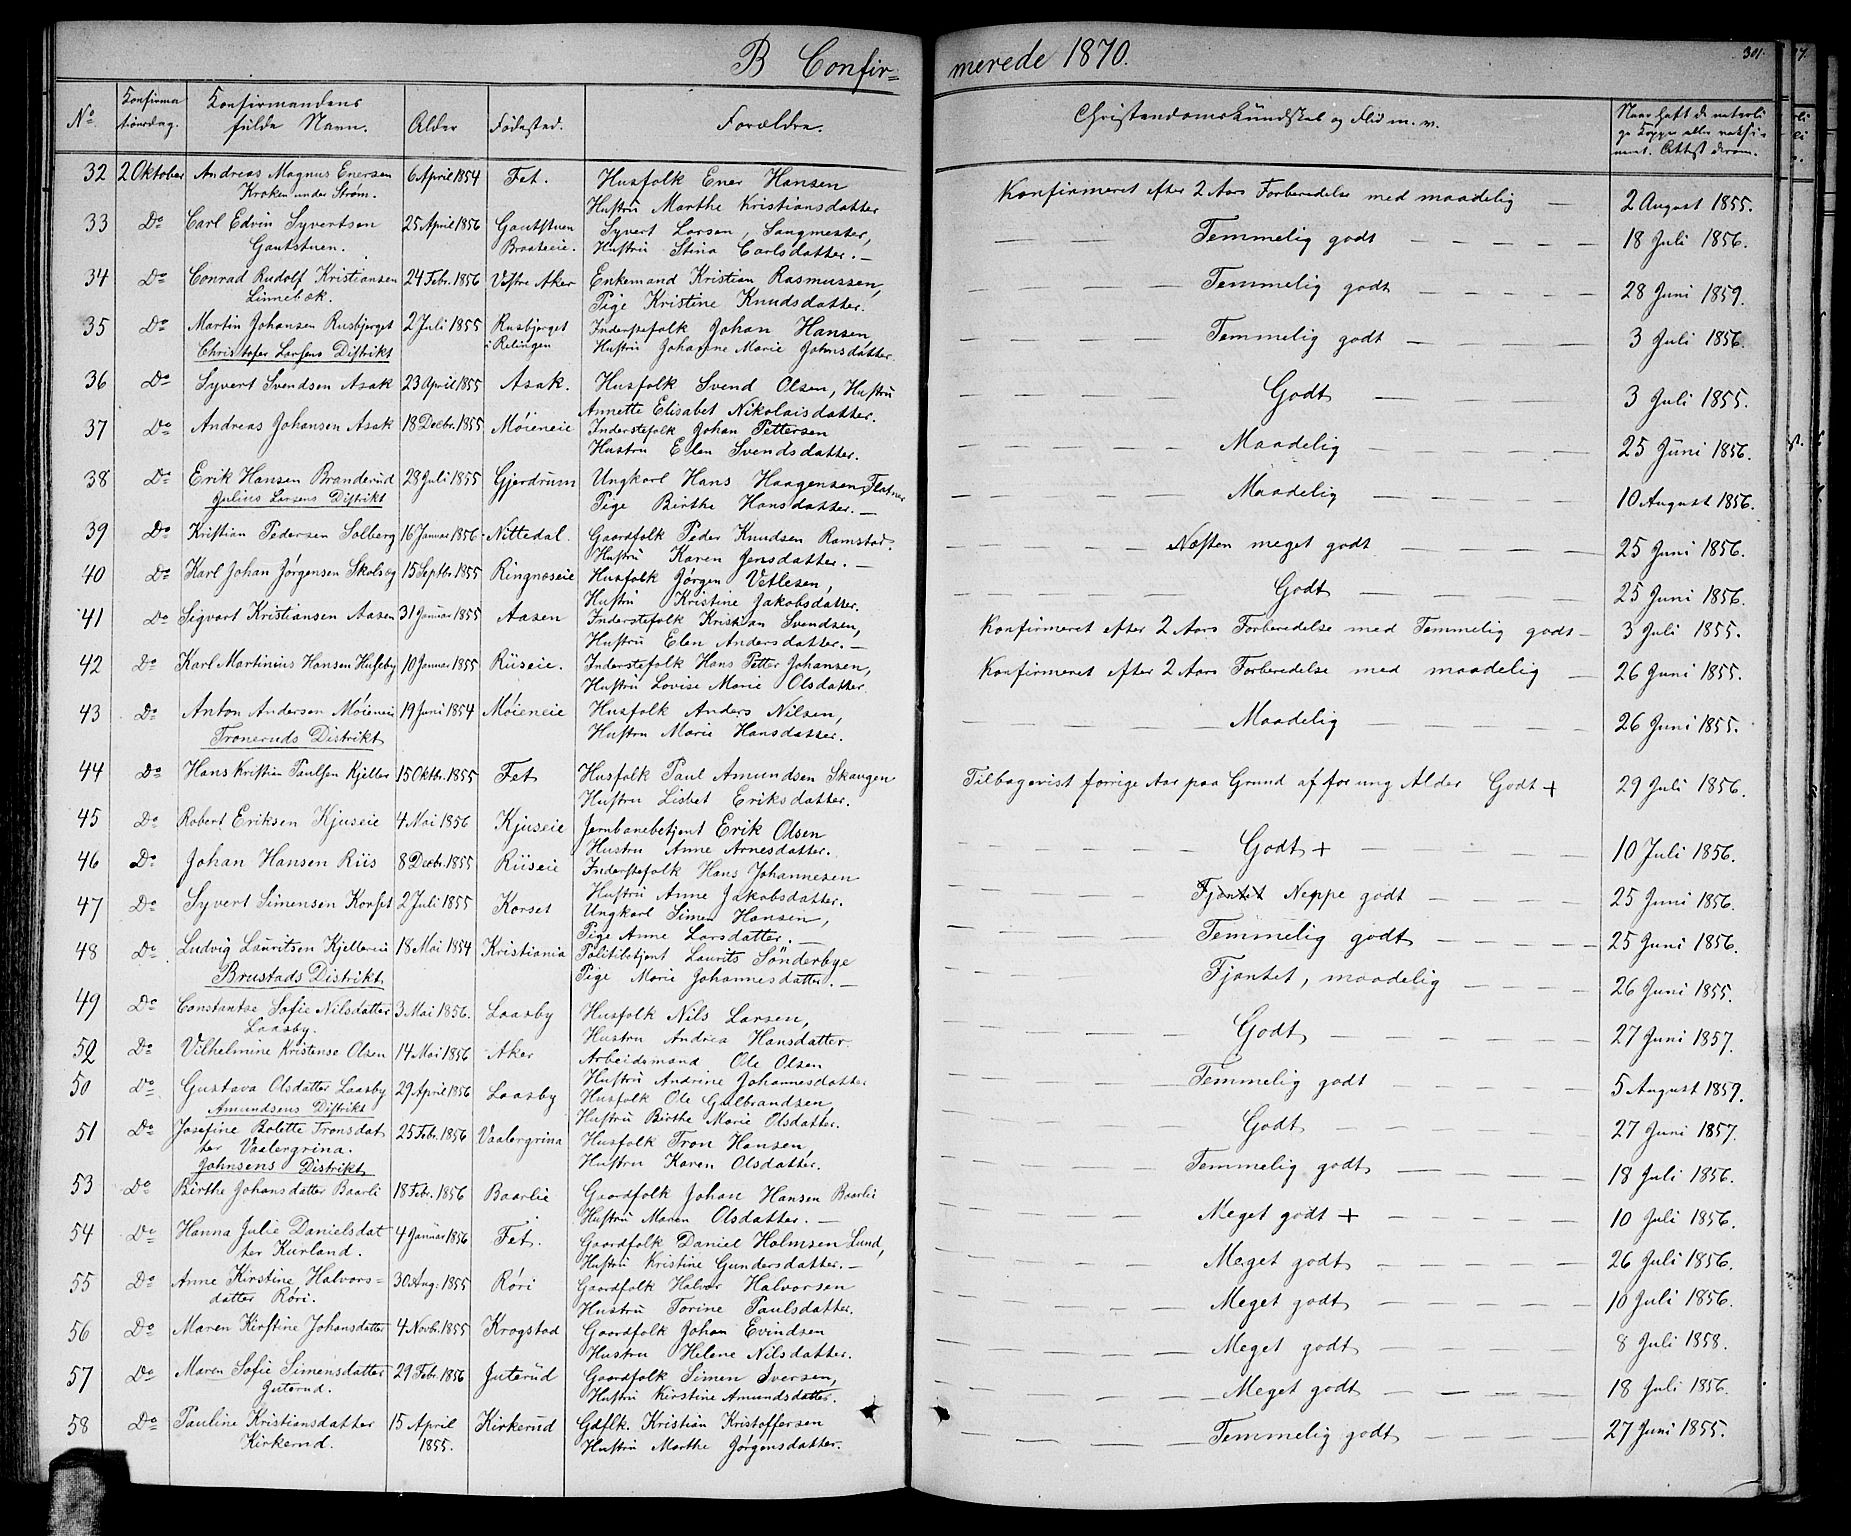 B Confir=
merede 1870.
301.
No
Konfirma
tionsdag.
Konfirmandens
fulde Navn.
Alder
Fødested.
Forældre.
Christendomskundskab og Flid m. v.
Naar haft de naturli
ge Kopper eller vaksi=
neret. Attest derom.
32 2 Oktober Andreas Magnus Enersen 6 April 1854 Fet. Husfolk Ener Hansen
Kroken under Strøm. Hustru Marthe Kristiansdatter
Konfirmeret efter 2 Aars Forberedelse med maadelig — 2 August 1855.
33 Do Carl Edvin Syvertsen 25 April 1856 Gautstuen Syvert Larsen, Sangmester,
Gautstuen. Braateeie. Hustru Stina Carlsdatter. —
Temmelig godt 18 Juli 1856.
34 Do Conrad Rudolf Kristiansen 24 Febr. 1856 Vestre Aker Enkemand Kristian Rasmussen,
Linnebæk. Pige Kristine Knudsdatter.
Temmelig godt 28 Juni 1859.
35 Do Martin Johansen Rusbjerget 2 Juli 1855 Rusbjerget Inderstefolk Johan Hansen,
Christofer Larsens Distrikt i Relingen Hustru Johanne Marie Johnsdatter.
Temmelig godt 3 Juli 1856.
36 Do Syvert Svendsen Asak 23 April 1855 Asak. Husfolk Svend Olsen, Hustru
Annette Elisabet Nikolaisdatter.
Godt 3 Juli 1855.
37 Do Andreas Johansen Asak 18 Decbr. 1855 Møieneie Inderstefolk Johan Pettersen
Hustru Elen Svendsdatter.
Maadelig 25 Juni 1856.
38 Do Erik Hansen Branderud 28 Juli 1855 Gjerdrum Ungkarl Hans Haagensen Flatner
Julius Larsens Distrikt Pige Birthe Hansdatter. —
Maadelig 10 August 1856.
39 Do Kristian Pedersen Solberg 16 Januar 1856 Nittedal. Gaardfolk Peder Knudsen Ramstad.
Hustru Karen Jensdatter. —
Næsten meget godt 25 Juni 1856.
40 Do Karl Johan Jørgensen Skolseg 15 Septbr. 1855 Ringnæseie Husfolk Jørgen Vetlesen,
Hustru Kristine Jakobsdatter.
Godt 25 Juni 1856.
41 Do Sigvart Kristiansen Aasen 31 Januar 1855 Aasen Inderstefolk Kristian Svendsen,
Hustru Elen Andersdatter. —
Konfirmeret efter 2 Aars Forberedelse med Temmelig godt — 3 Juli 1855.
42 Do Karl Martinius Hansen Huseby 10 Januar 1855 Riiseie. Inderstefolk Hans Petter Johansen,
Hustru Lovise Marie Olsdatter.
Konfirmeret efter 2 Aars Forberedelse med maadelig — 26 Juni 1855.
43 Do Anton Andersen Møieneie 19 Juni 1854 Møieneie Husfolk Anders Nilsen,
Troneruds Distrikt Hustru Marie Hansdatter.
Maadelig 26 Juni 1855.
44 Do Hans Kristian Paulsen Kjeller 15 Oktbr. 1855 Fet Husfolk Paul Amundsen Skaugen
Hustru Lisbet Eriksdatter.
Tilbagevist forrige Aar paa Grund af for ung Alder Godt + 29 Juli 1856.
45 Do Robert Eriksen Kjuseie 4 Mai 1856 Kjuseie Jernbanebetjent Erik Olsen
Hustru Anne Arnesdatter.
Godt + 10 Juli 1856.
46 Do Johan Hansen Riis 8 Decbr. 1855 Riiseie Inderstefolk Hans Johannesen
Hustru Anne Jakobsdatter.
Fjantet Neppe godt 25 Juni 1856.
47 Do Syvert Simensen Korset 2 Juli 1855 Korset Ungkarl Simen Hansen,
Pige Anne Larsdatter. —
Temmelig godt 25 Juni 1856.
48 Do Ludvig Lauritsen Kjellereie 18 Mai 1854 Kristiania Politibetjent Laurits Sönderbye
Brustads Distrikt Pige Marie Johannesdatter. —
Fjantet, maadelig 26 Juni 1855.
49 Do Constantse Sofie Nilsdatter 3 Mai 1856. Laasby Husfolk Nils Larsen,
Laasby. Hustru Andrea Hansdatter
Godt 27 Juni 1857.
52 Do Vilhelmine Kristense Olsen 14 Mai 1856 Aker Arbeidsmand Ole Olsen
Hustru Andrine Johannesdatter
Temmelig godt 5 August 1859.
50 Do Gustava Olsdatter Laasby 29 April 1856 Laasby Husfolk Ole Gulbrandsen
Amundsens Distrikt Hustru Birthe Marie Olsdatter.
Godt 27 Juni 1857.
51 Do Josefine Bolette Tronsdat 25 Febr. 1856 Vaalergrina Husfolk Tron Hansen,
ter Vaalergrina. Hustru Karen Olsdatter.
Johnsens Distrikt
Temmelig godt 18 Juli 1856.
53 Do Birthe Johansdatter Baarli 18 Febr. 1856 Baarlie Gaardfolk Johan Hansen Baarli
Hustru Maren Olsdatter. —
Meget godt + 10 Juli 1856.
54 Do Hanna Julie Danielsdat 4 Januar 1856 Fet. Gaardfolk Daniel Holmsen Lund,
ter Kurland. Hustru Kristine Gundersdatter. —
Meget godt 26 Juli 1856.
55 Do Anne Kirstine Halvors= 30 Aug. 1855 Røri Gaardfolk Halvor Halvorsen
datter Røri. Hustru Torine Paulsdatter.
Meget godt 10 Juli 1856.
56 Do Maren Kirstine Johansdatter 4 Novbr. 1855 Krogstad Gaardfolk Johan Evindsen
Hustru Helene Nilsdatter.
Meget godt 8 Juli 1858.
57 Do Maren Sofie Simensdatter 29 Febr. 1856 Juterud Gaardfolk Simen Iversen,
Juterud. Hustru Kirstine Amundsdatter.
Meget godt 18 Juli 1856.
58 Do Pauline Kristiansdatter 15 April Kirkerud Gdflk. Kristian Kristoffersen
Kirkerud. 1855. Hustru Marthe Jørgensdatter.
Temmelig godt 27 Juni 1855.